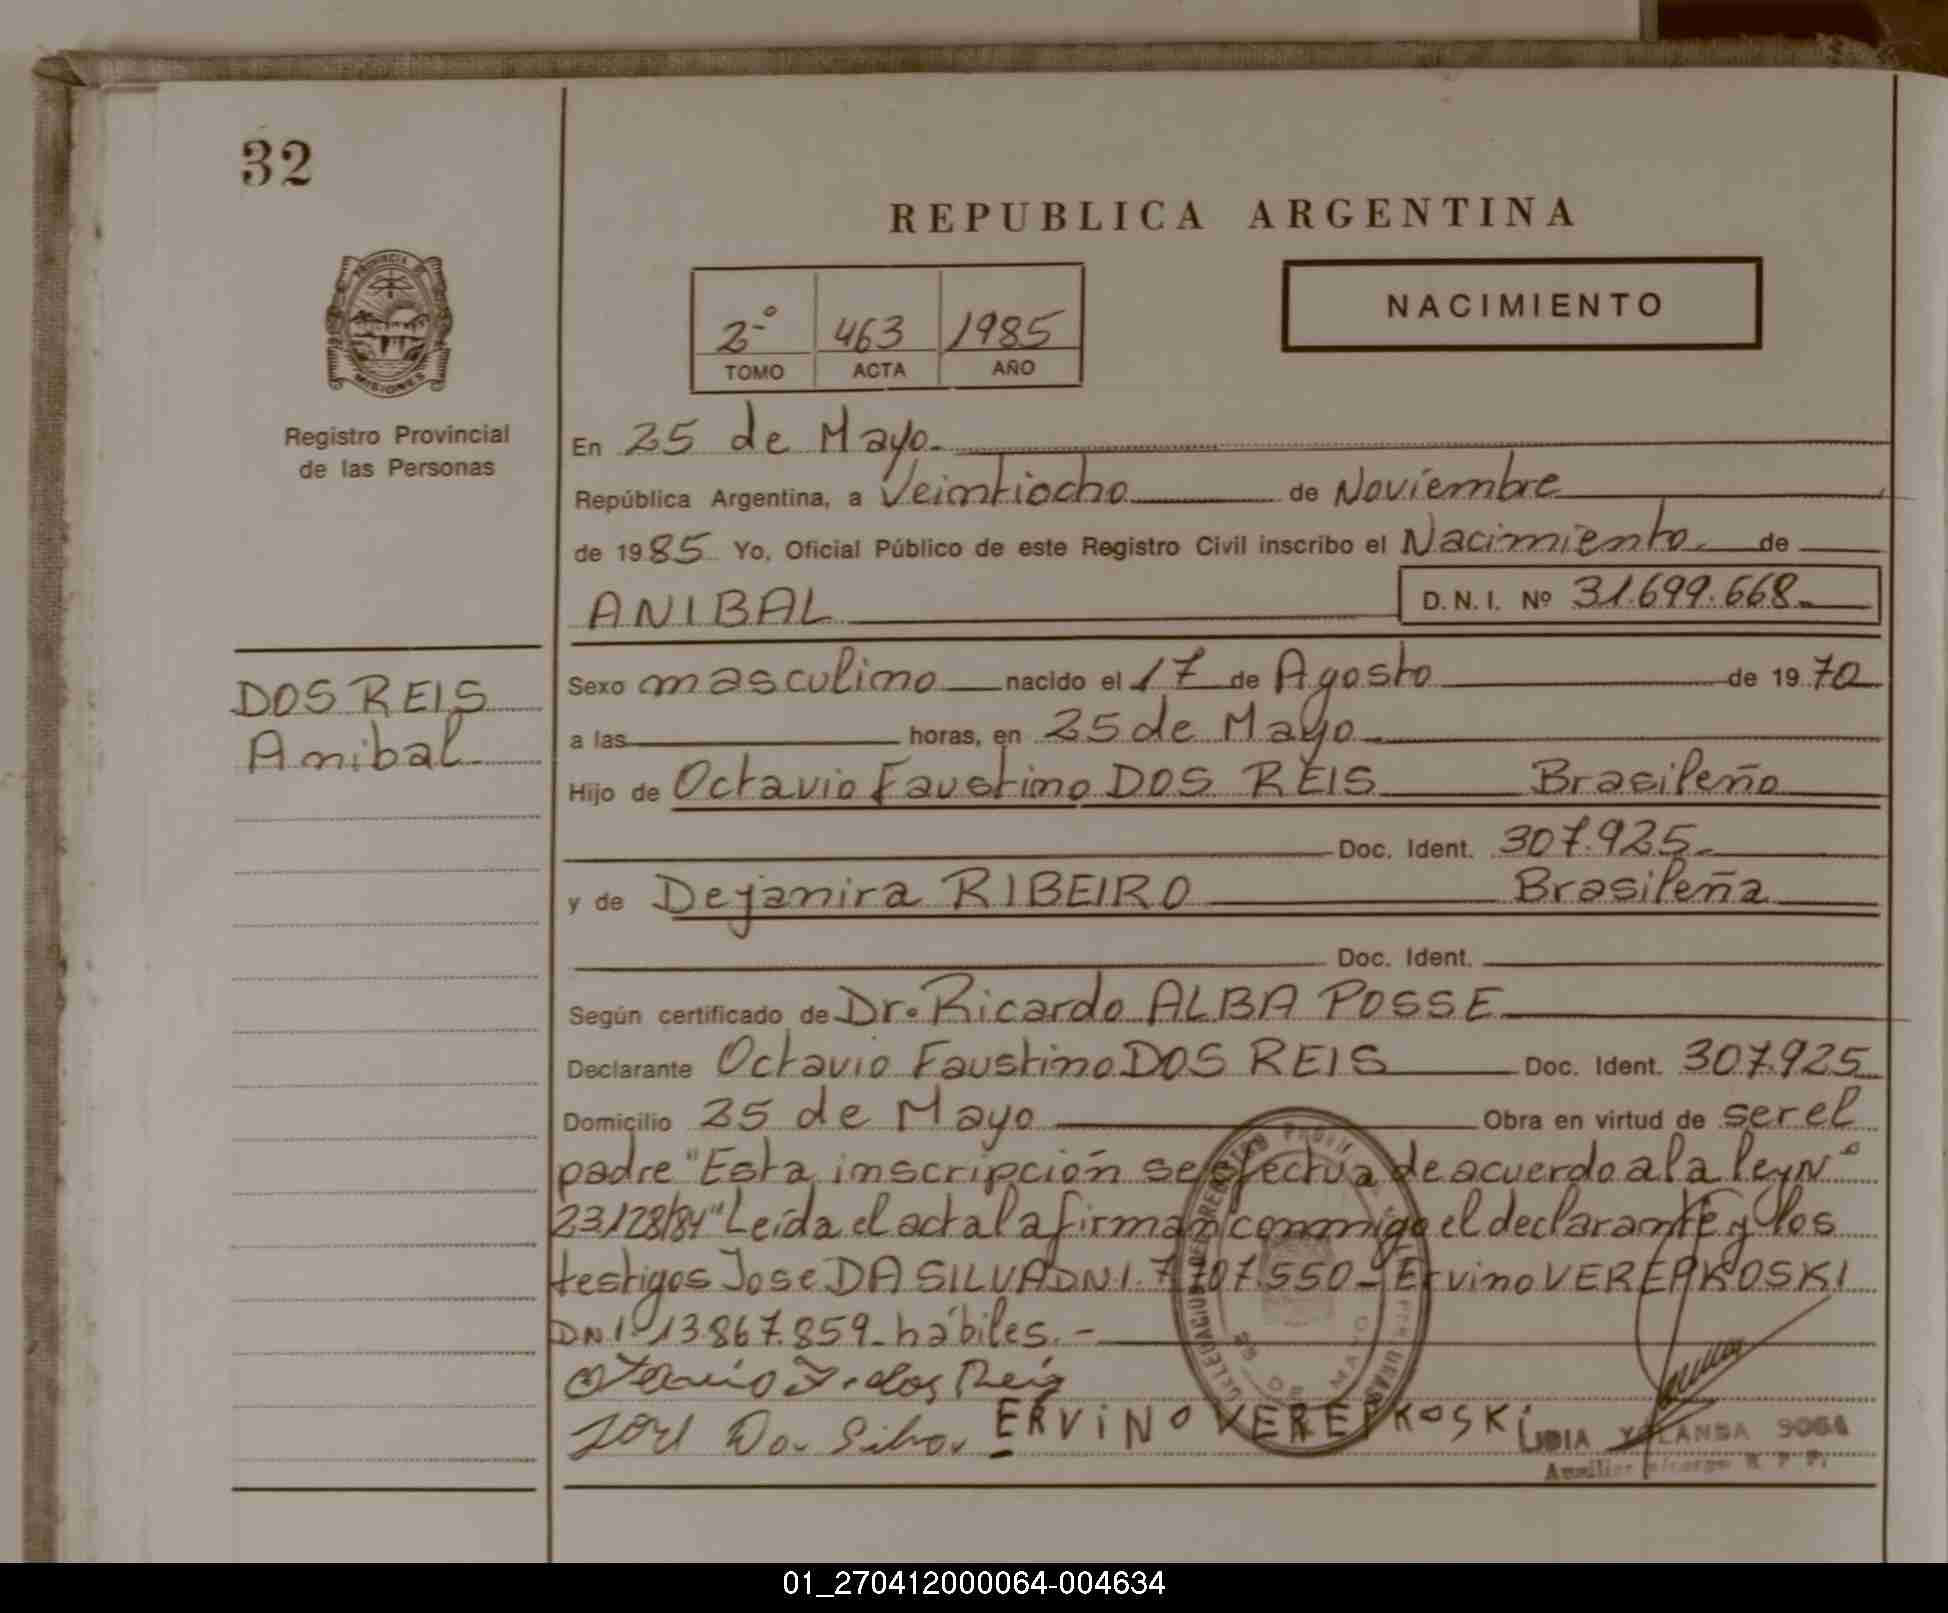 32
REPUBLICA ARGENTINA
PROVINCIA DE
MISIONES
Registro Provincial
de las Personas
2º 463 1985
TOMO ACTA AÑO
NACIMIENTO
En 25 de Mayo.
República Argentina, a Veintiocho de Noviembre
de 1985 Yo, Oficial Público de este Registro Civil inscribo el Nacimiento de
ANIBAL D.N.I. Nº 31.699.668
DOS REIS
Anibal
Sexo masculino nacido el 17 de Agosto de 1970
a las horas, en 25 de Mayo
Hijo de Octavio Faustino DOS REIS Brasileño
Doc. Ident. 307.925
y de Dejanira RIBEIRO Brasileña
Doc. Ident.
Según certificado de Dr. Ricardo ALBA POSSE
Declarante Octavio Faustino DOS REIS Doc. Ident. 307.925
Domicilio 25 de Mayo Obra en virtud de ser el
padre "Esta inscripción se efectua de acuerdo a la ley Nº
23128/84" Leída el acta la firman conmigo el declarante y los
testigos Jose DA SILVA DNI. 7.707.550 - Ervino VEREPKOSKI
DNI 13.867.859 - hábiles. -
Otavio F. dos Reis
José Da Silva ERViNO VEREPKOSKi
LIDIA YOLANDA SOSA
Auxiliar a/cargo R P P.
25 DE MAYO
01_270412000064-004634